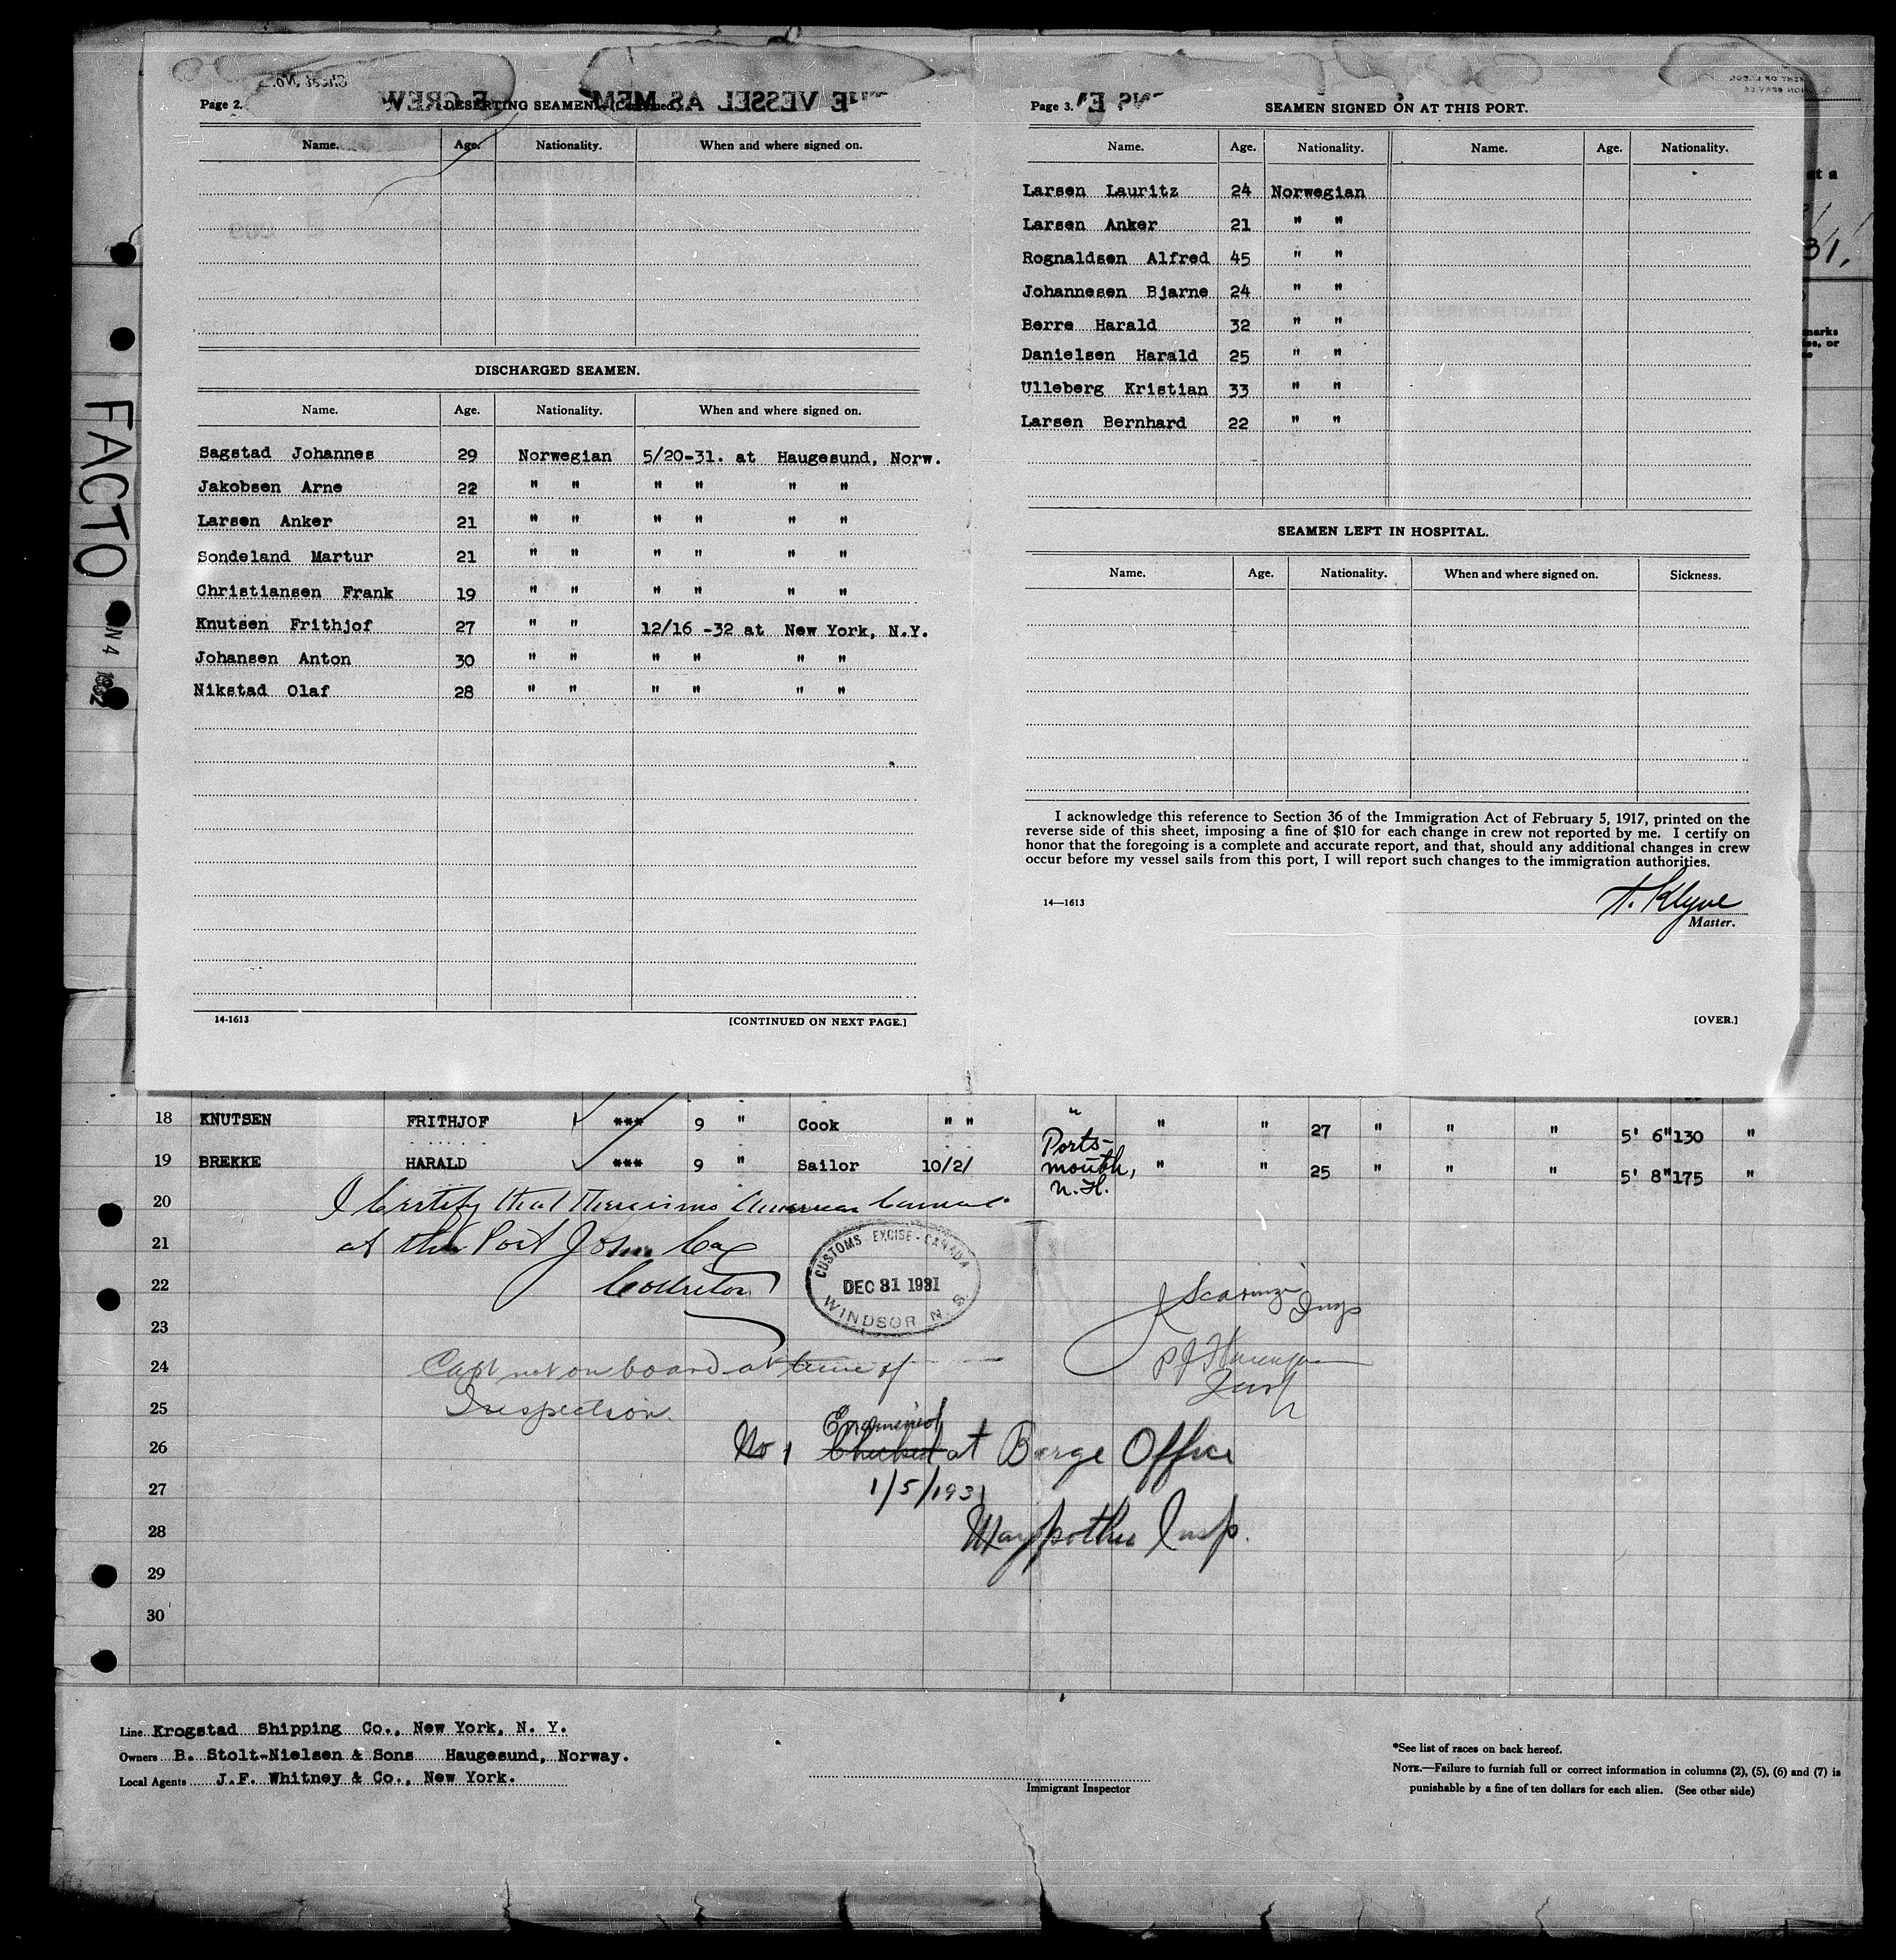 Page 2. DESERTING SEAMEN.—(Continued)
Name. Age. Nationality. When and where signed on.
DISCHARGED SEAMEN.
Name. Age. Nationality. When and where signed on.
Sagstad Johannes 29 Norwegian 5/20-31. at Haugesund, Norw.
Jakobsen Arne 22 " " " " " "
Larsen Anker 21 " " " " " "
Sondeland Martur 21 " " " " " "
Christiansen Frank 19 " " " " " "
Knutsen Frithjof 27 " " 12/16 -32 at New York, N.Y.
Johansen Anton 30 " " " " " "
Nikstad Olaf 28 " " " " " "
14-1613 [CONTINUED ON NEXT PAGE.]
Page 3. SEAMEN SIGNED ON AT THIS PORT.
Name. Age. Nationality. Name. Age. Nationality.
Larsen Lauritz 24 Norwegian
Larsen Anker 21 " "
Rognaldsen Alfred 45 " "
Johannesen Bjarne 24 " "
Berre Harald 32 " "
Danielsen Harald 25 " "
Ulleberg Kristian 33 " "
Larsen Bernhard 22 " "
SEAMEN LEFT IN HOSPITAL.
Name. Age. Nationality. When and where signed on. Sickness.
I acknowledge this reference to Section 36 of the Immigration Act of February 5, 1917, printed on the
reverse side of this sheet, imposing a fine of $10 for each change in crew not reported by me. I certify on
honor that the foregoing is a complete and accurate report, and that, should any additional changes in crew
occur before my vessel sails from this port, I will report such changes to the immigration authorities.
14—1613
Klyve
Master.
[OVER.]
FACTO
18 KNUTSEN FRITHJOF *** 9 " Cook " " " " " 27 " " " 5' 6" 130 "
19 BREKKE HARALD *** 9 " Sailor 10/2/ Ports-
mouth, N.H. " " 25 " " " 5' 8" 175 "
20 I Certify that there is no American Consul
21 at this Port John
22 Collector
CUSTOMS EXCISE - CANADA
DEC 31 1931
WINDSOR N. S.
23
24 Capt not on board at time of
25 Inspection.
26 No 1 Examined at Barge Office
27 1/5/1931
28 Insp.
29
30
Line Krogstad Shipping Co., New York, N. Y.
Owners B. Stolt-Nielsen & Sons Haugesund, Norway.
Local Agents J.F. Whitney & Co., New York.
Immigrant Inspector
*See list of races on back hereof.
NOTE.—Failure to furnish full or correct information in columns (2), (5), (6) and (7) is
punishable by a fine of ten dollars for each alien. (See other side)